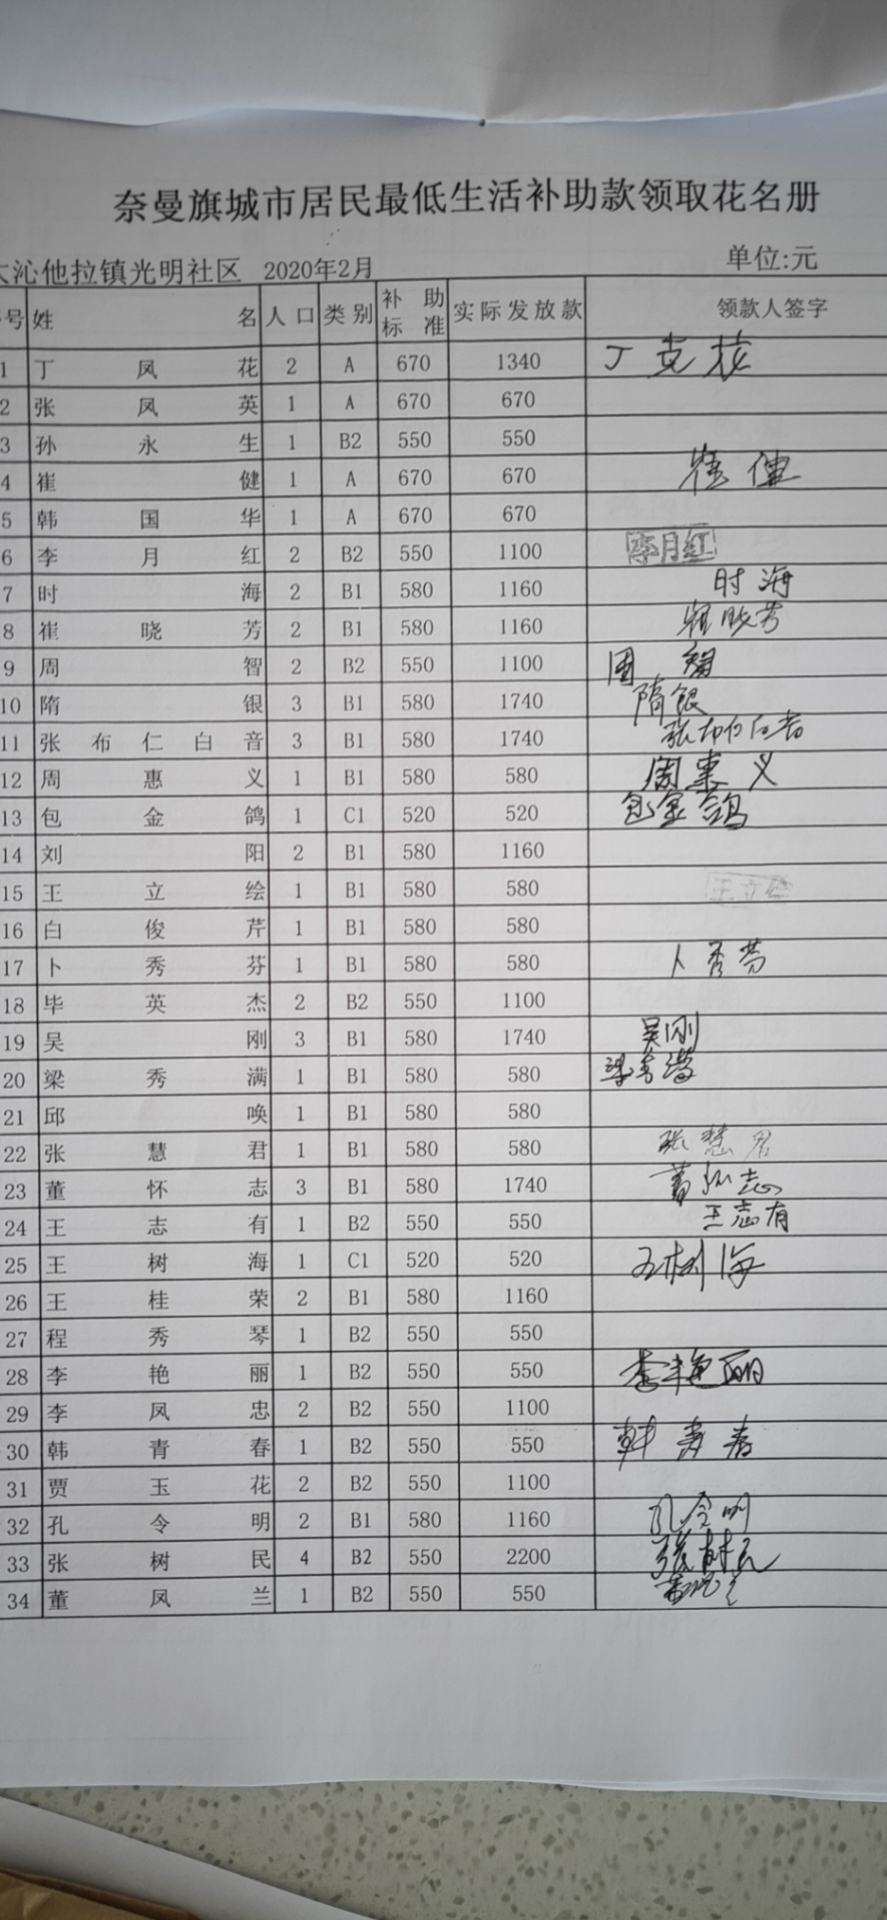 奈曼旗城市居民最低生活补助款领取花名册
沁他拉镇光明社区 2020年2月 单位:元
号 姓名 人口 类别 补助标准 实际发放款 领款人签字
1 丁凤花 2 A 670 1340
2 张凤英 1 A 670 670
3 孙永生 1 B2 550 550
4 崔健 1 A 670 670 崔健
5 韩国华 1 A 670 670
6 李月红 2 B2 550 1100 李月红
7 时海 2 B1 580 1160 时海
8 崔晓芳 2 B1 580 1160 崔晓芳
9 周智 2 B2 550 1100
10 隋银 3 B1 580 1740 隋银
11 张布仁白音 3 B1 580 1740
12 周惠义 1 B1 580 580 周惠义
13 包金鸽 1 C1 520 520 包金鸽
14 刘阳 2 B1 580 1160
15 王立绘 1 B1 580 580 王立绘
16 白俊芹 1 B1 580 580
17 卜秀芬 1 B1 580 580 卜秀芬
18 毕英杰 2 B2 550 1100
19 吴刚 3 B1 580 1740 吴刚
20 梁秀满 1 B1 580 580 梁秀满
21 邱唤 1 B1 580 580
22 张慧君 1 B1 580 580 张慧君
23 董怀志 3 B1 580 1740 董怀志
24 王志有 1 B2 550 550 王志有
25 王树海 1 C1 520 520 王树海
26 王桂荣 2 B1 580 1160
27 程秀琴 1 B2 550 550
28 李艳丽 1 B2 550 550 李艳丽
29 李凤忠 2 B2 550 1100
30 韩青春 1 B2 550 550 韩青春
31 贾玉花 2 B2 550 1100
32 孔令明 2 B1 580 1160 孔令明
33 张树民 4 B2 550 2200 张树民
34 董凤兰 1 B2 550 550